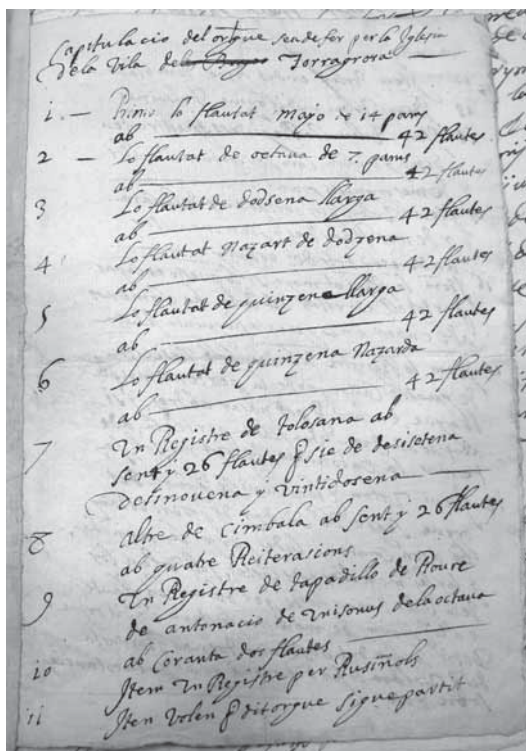 Capitulacio del orgue sea de fer per la Iglesia
De la Vila de Torragrosa
1. — Primo lo flautat mayo de 14 pams
ab 42 flautes
2 — Lo flautat de octava de 7. pams
ab 42 flautes
3 Lo flautat de dodsena llarga
ab 42 flautes
4 Lo flautat Nazart de dodzena
ab 42 flautes
5 Lo flautat de quinzena llarga
ab 42 flautes
6 Lo flautat de quinzena Nazarda
ab 42 flautes
7 Un Registre de tolosana ab
sent y 26 flautes sie de desisetena
desinovena y vintidosena
8 altre de cimbala ab sent y 26 flautes
ab quatre Reiterasions
9 Un Registre de tapadillo de Roure
de antonacio de unisonus de la octava
ab Coranta dos flautes
10 Item Un Registre per Rusiñols
11 Iten Volen dit orgue sigue partit